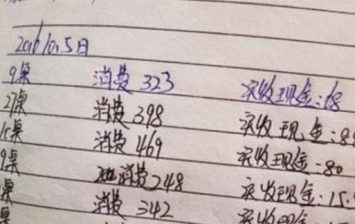 2016/10.5日
9桌 消费 323 实收现金:68
27桌 消费 398 实收现金:8
桌 消费 469 实收现金:80
9桌 消费 248 实收现金:15.
桌 消费 342 实收现金